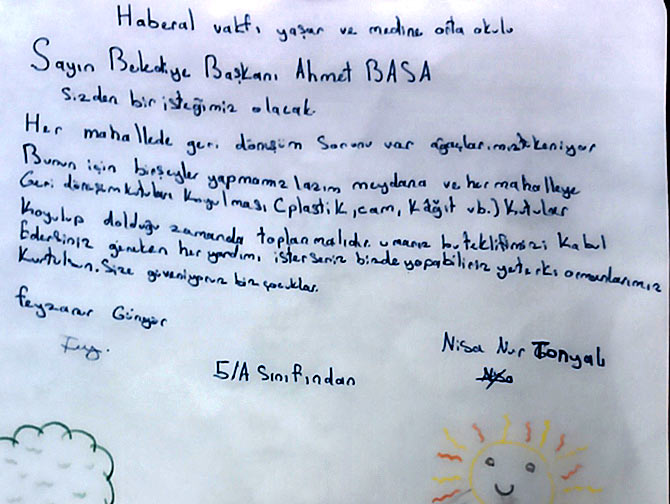 Haberal vakfı yaşar ve medine orta okulu
Sayın Belediye Başkanı Ahmet BASA
Sizden bir isteğimiz olacak.
Her mahallede geri dönüşüm Sorunu var ağaçlarımız tükeniyor
Bunun için birşeyler yapmamız lazım meydana ve her mahalleye
Geri dönüşüm kutuları Koyulması (plastik, cam, Kâğıt vb.) Kutular
Koyulup dolduğu zamanda toplanmalıdır. umarız bu teklifimizi Kabul
Edersiniz gereken her yardımı, isterseniz bizde yapabiliriz yeterki ormanlarımız
Kurtulsun. Size güveniyoruz biz çocuklar.
Feyzanur Güngür
Fey.
Nisa Nur Tonyalı
Nisa
5/A Sınıfından